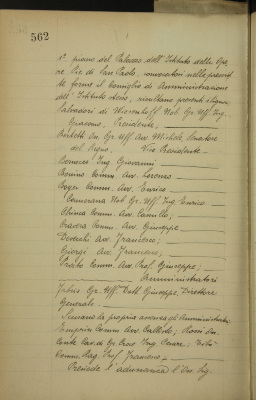 562
1° piano del Palazzo dell'Istituto delle Ope-
re Pie di San Paolo, convocatosi nelle prescrit-
te forme il Consiglio di Amministrazione
dell'Istituto stesso, risultano presenti i Signori
Salvadori di Wiesenhoff Nob. Gr. Uff. Ing.
Giacomo, Presidente,
On. Gr. Uff. Avv. Michele, Senatore
del Regno, Vice Presidente
Ing. Giovanni
Bonino Comm. Avv. Lorenzo
Comm. Avv. Enrico
Camerana Nob. Gr. Uff. Ing. Enrico
Comm. Avv. Camillo;
Cravero Comm. Avv. Giuseppe
Avv. Francesco;
Giorgi Avv. Francesco;
Comm. Avv. Prof. Giuseppe;
Amministratori
Gr. Uff. Dott. Giuseppe, Direttore
Generale.
la propria assenza gli Amministratori
Comm. Avv. Callisto; Rossi
Conte Cav. di Gr. Croce Ing. Cesare;
Comm. Rag. Prof. Francesco.
Presiede l'adunanza l'On. Ing.